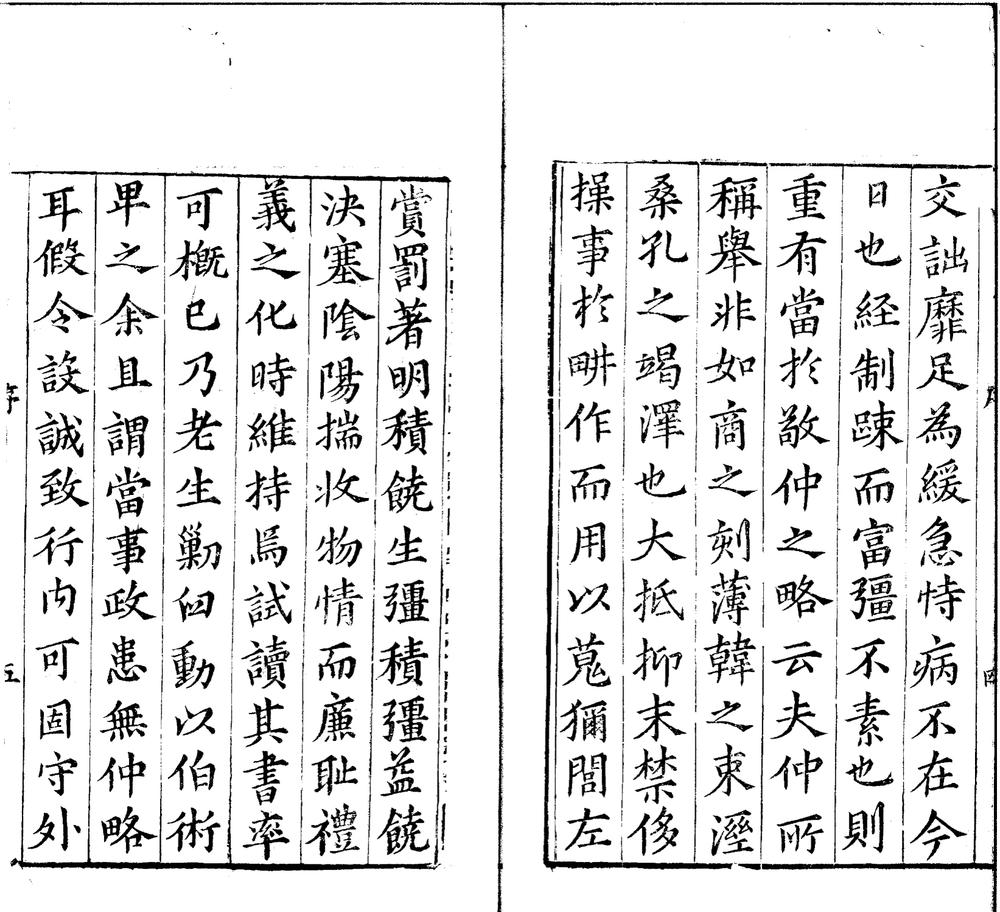 交詘靡足為緩急恃病不在今
日也経制踈而富彊不素也則
重有當扵敬仲之略云夫仲所
稱舉非如商之刻薄韓之束溼
桑孔之竭澤也大抵抑末禁侈
操事扵畊作而用以蒐獮閭左
賞罰著明積饒生彊積彊益饒
決塞陰陽揣收物情而廉耻禮
義之化時維持焉試讀其書率
可概已乃老生勦囙動以伯術
卑之余且謂當事政患無仲略
耳假令設誠致行内可固守外
序
五